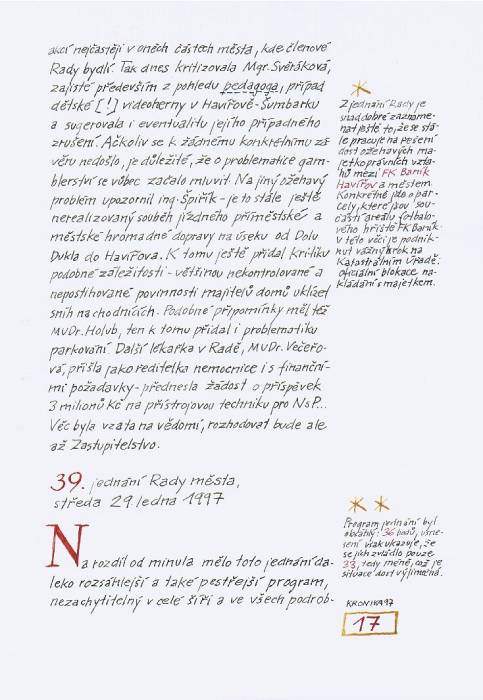 akcí nejčastěji v oněch částech města, kde členové
Rady bydlí. Tak dnes kritizovala Mgr. Svěráková,
zajisté především z pohledu pedagoga, případ
dětské [!] videoherny v Havířově-Šumbarku
a sugerovala i eventualitu jejího případného
zrušení. Ačkoliv se k žádnému konkrétnímu zá-
věru nedošlo, je důležité, že o problematice gam-
blerství se vůbec začalo mluvit. Na jiný ožehavý
problém upozornil ing. Špiřík - je to stále ještě
nerealizovaný souběh jízdního příměstské a
městské hromadné dopravy na úseku od Dolu
Dukla do Havířova. K tomu ještě přidal kritiku
podobné záležitosti - většinou nekontrolované a
nepostihované povinnosti majitelů domů uklízet
sníh na chodnících. Podobné připomínky měl též
MUDr. Holub, ten k tomu přidal i problematiku
parkování. Další lékařka v Radě, MUDr. Večeřo-
vá, přišla jako ředitelka nemocnice i s finanční-
mi požadavky - přednesla žádost o příspěvek
3 milionů Kč na přístrojovou techniku pro NsP...
Věc byla vzata na vědomí, rozhodovat bude ale
až Zastupitelstvo.
Z jednání Rady je
snad dobré zazname-
nat ještě to, že se stá-
le pracuje na řešení
dost ožehavých ma-
jetkoprávních vzta-
hů mezi FK Baník
Havířov a městem.
Konkrétně jde o par-
cely, které jsou sou-
částí areálu fotbalo-
vého hřiště FK Baník.
V této věci je podnik-
nut vážný krok na
Katastrálním úřadě:
oficiální blokace na-
kládání s majetkem.
39. jednání Rady města,
středa 29. ledna 1997
Na rozdíl od minula mělo toto jednání da-
leko rozsáhlejší a také pestřejší program,
nezachytitelný v celé šíři a ve všech podrob-
Program jednání byl
obsáhlý: 36 bodů, usne-
sení však ukazuje, že
se jich zvládlo pouze
33, tedy méně, což je
situace dost výjimečná.
KRONIKA 97
17